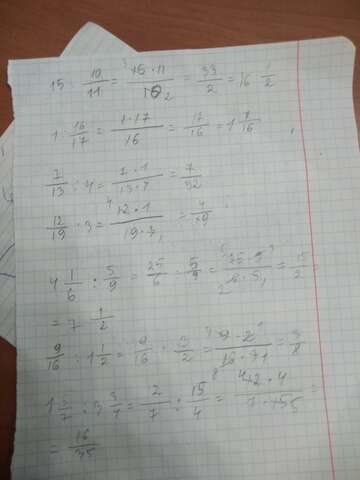 15 : 10/11 = 15·11/10 = 33/2 = 16 1/2
1 : 16/17 = 1·17/16 = 17/16 = 1 1/16
7/13 : 4 = 7·1/13·4 = 7/52
12/19 : 3 = 12·1/19·3 = 4/19
4 1/6 : 5/9 = 25/6 : 5/9 = 25·9/6·5 = 15/2 =
= 7 1/2
9/16 : 1 1/2 = 9/16 : 3/2 = 9·2/16·3 = 3/8
1 5/7 : 3 3/4 = 12/7 : 15/4 = 12·4/7·15 =
= 16/35